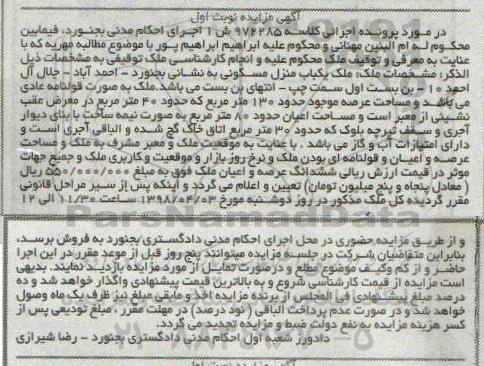 آگهی مزایده نوبت اول
در مورد پرونده اجرائی کلاسه ۹۷۲۲۸۵ ش ۱ اجرای احکام مدنی بجنورد، فیمابین
محکوم له ام البنین مهنانی و محکوم علیه ابراهیم ابراهیم پور با موضوع مطالبه مهریه که با
عنایت به معرفی و توقیف ملک محکوم علیه و انجام کارشناسی ملک توقیفی به مشخصات ذیل
الذکر: مشخصات ملک: ملک یکباب منزل مسکونی به نشانی بجنورد - احمد آباد - جلال آل
احمد ۱۰ - بن بست اول سمت چپ - انتهای بن بست می باشد.ملک به صورت قولنامه عادی
می باشد و مساحت عرصه موجود حدود ۱۳۰ متر مربع که حدود ۴۰ متر مربع در معرض عقب
نشینی از معبر است و مساحت اعیان حدود ۸۰ متر مربع به صورت نیمه ساخت با بنای دیوار
آجری و سقف تیرچه بلوک که حدود ۳۰ متر مربع اتاق خاک گچ شده و الباقی آجری است و
دارای امتیازات آب و گاز می باشد . با عنایت به موقعیت ملک و معبر مشرف به ملک و مساحت
عرصه و اعیان و قولنامه ای بودن ملک و نرخ روز بازار و موقعیت و کاربری ملک و جمیع جهات
موثر در قیمت ارزش ریالی ششدانگ عرصه و اعیان ملک فوق به مبلغ ۵۵۰/۰۰۰/۰۰۰ ریال
( معادل پنجاه و پنج میلیون تومان) تعیین و اعلام می گردد و اینکه پس از سیر مراحل قانونی
مقرر گردیده کل ملک مذکور در روز دوشنبه مورخ ۱۳۹۸/۰۴/۰۳ ساعت ۱۱/۳۰ الی ۱۲
ParsNamadData
و از طریق مزایده حضوری در محل اجرای احکام مدنی دادگستری بجنورد به فروش برسد،
بنابراین متقاضیان شرکت در جلسه مزایده میتوانند پنج روز قبل از موعد مقرر در این اجرا
حاضر و از کم وکیف موضوع مطلع و در صورت تمایل از مورد مزایده بازدید نمایند. بدیهی
است مزایده از قیمت کارشناسی شروع و به بالاترین قیمت پیشنهادی واگذار خواهد شد و ده
درصد مبلغ پیشنهادی فی المجلس از برنده مزایده اخذ و مابقی مبلغ نیز ظرف یک ماه وصول
خواهد شد و در صورت عدم پرداخت الباقی ( نود درصد) در مهلت مقرر ، مبلغ تودیعی پس از
کسر هزینه مزایده به نفع دولت ضبط و مزایده تجدید می گردد.
دادورز شعبه اول احکام مدنی دادگستری بجنورد - رضا شیرازی